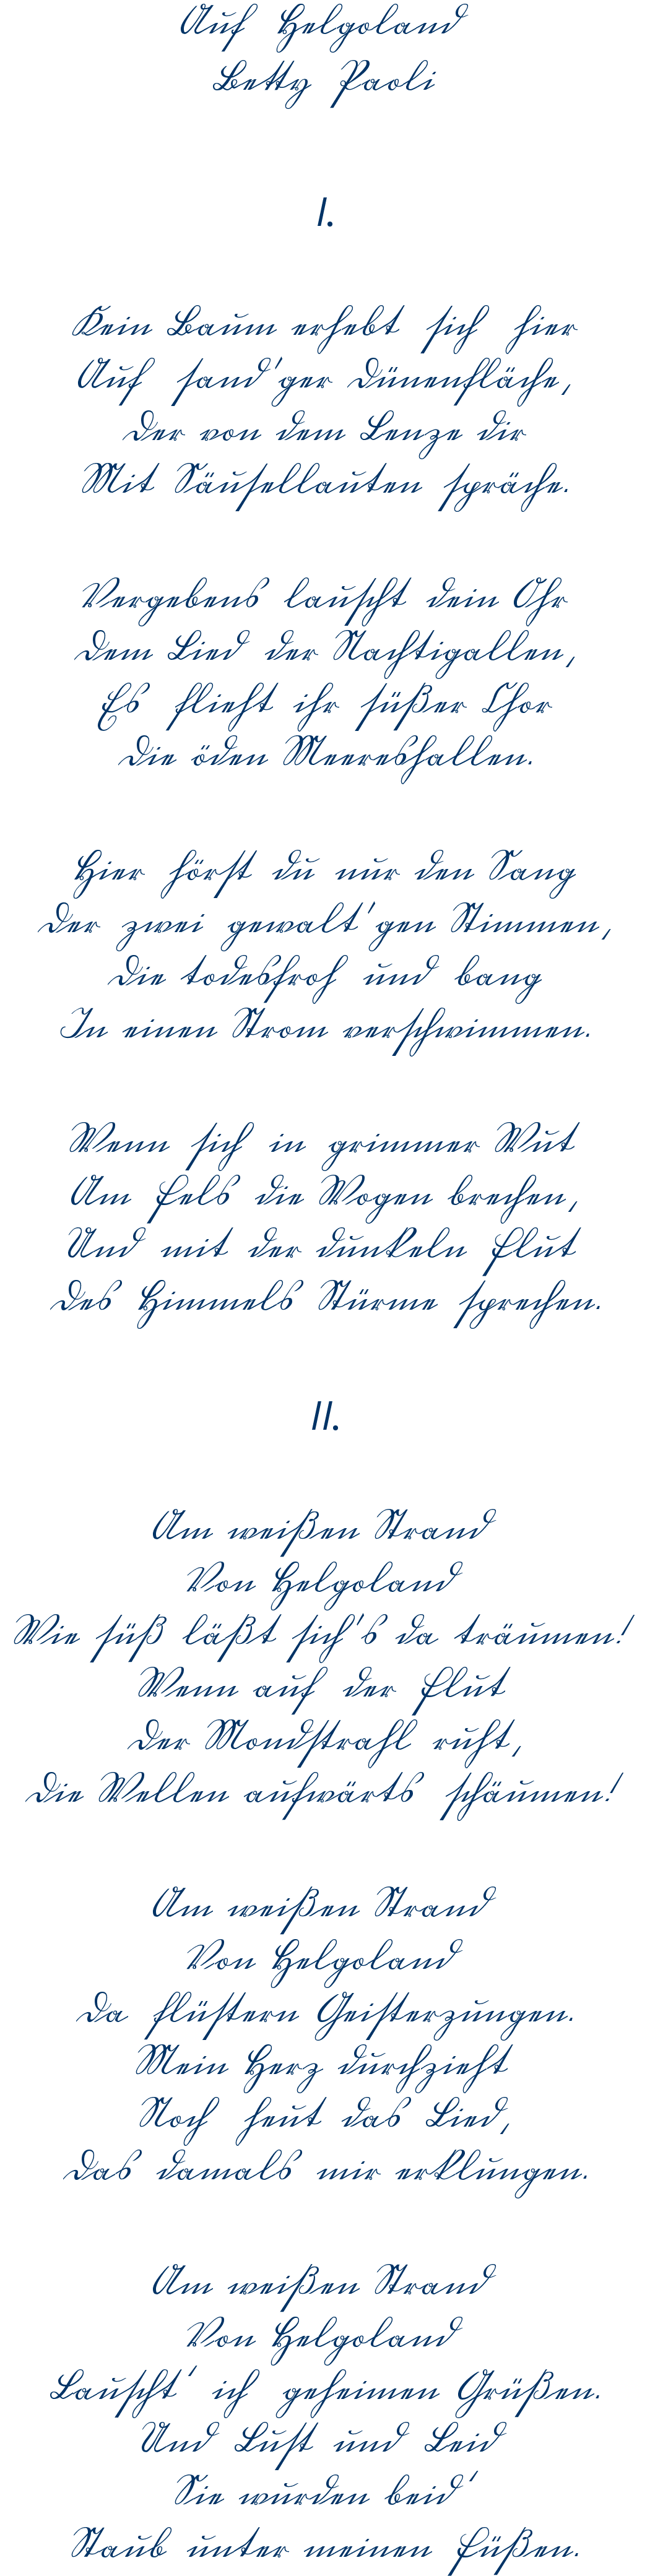 Auf Helgoland
Betty Paoli
I.
Kein Baum erhebt sich hier
Auf sand'ger Dünenfläche,
Der von dem Lenze dir
Mit Säusellauten spräche.
Vergebens lauscht dein Ohr
Dem Lied der Nachtigallen,
Es flieht ihr süßer Chor
Die öden Meereshallen.
Hier hörst du nur den Sang
Der zwei gewalt'gen Stimmen,
Die todesfroh und bang
In einen Strom verschwimmen.
Wenn sich in grimmer Wut
Am Fels die Wogen brechen,
Und mit der dunkeln Flut
Des Himmels Stürme sprechen.
II.
Am weißen Strand
Von Helgoland
Wie süß läßt sich's da träumen!
Wenn auf der Flut
Der Mondstrahl ruht,
Die Wellen aufwärts schäumen!
Am weißen Strand
Von Helgoland
Da flüstern Geisterzungen.
Mein Herz durchzieht
Noch heut das Lied,
Das damals mir erklungen.
Am weißen Strand
Von Helgoland
Lauscht' ich geheimen Grüßen.
Und Lust und Leid
Sie wurden beid'
Staub unter meinen Füßen.